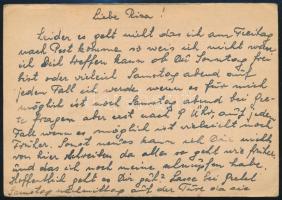 Liebe Risa!
Leider es geht nicht das ich am Freitag
nach Pest komme so weis ich nicht wann
ich Dich treffen kann ob Du Sonntag frei
bist oder vieleich Samstag abend auf
jeden Fall ich werde wenn es für mich
möglich ist noch Samstag abend bei
fragen aber erst nach 9 Uhr, auf jeden
Fall wenn es möglich ist vieleicht noch
Früher. Sonst neues kann ich Dir nicht
von hier schreiben da alles so geht wie früher
und das ich noch meine schnupfen habe.
Hoffentlich geht es Dir gut? Lasse bei
Samstag Nachmittag auf der Türe da sie